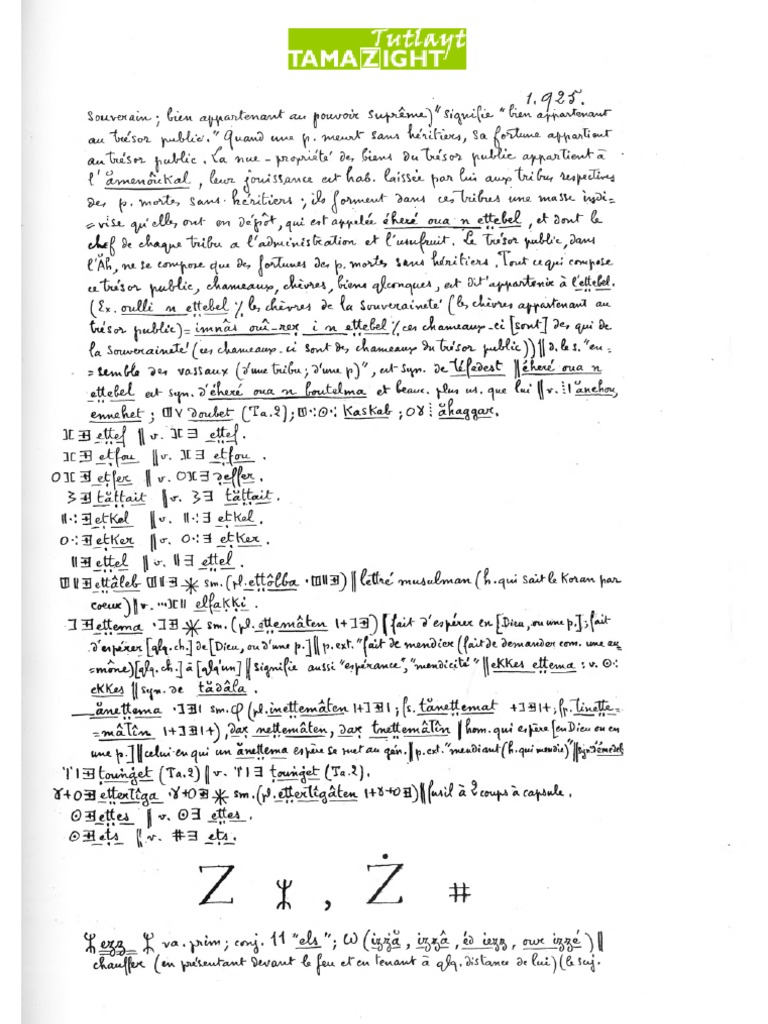 Tutlayt
TAMAZIGHT
1.925.
souverain ; bien appartenant au pouvoir suprême)" signifie "bien appartenant
au trésor public." Quand une p. meurt sans héritiers, sa fortune appartient
au trésor public. La nue-propriété des biens du trésor public appartient à
l'ămenôukal, leur jouissance est hab. laissée par lui aux tribus respectives
des p. mortes sans héritiers ; ils forment dans ces tribus une masse indi=
=vise qu'elles ont en dépôt, qui est appelée éheré oua n ettebel, et dont le
chef de chaque tribu a l'administration et l'usufruit. Le trésor public, dans
l'Ăh, ne se compose que des fortunes des p. mortes sans héritiers. Tout ce qui compose
ce trésor public, chameaux, chèvres, biens qlconques, est dit "appartenir à l'ettebel.
(Ex. oulli n ettebel ٪ les chèvres de la Souveraineté (les chèvres appartenant au
trésor public) = imnâs ouî-reɣ i n ettebel ٪ ces chameaux-ci [sont] des qui de
la Souveraineté (ces chameaux-ci sont des chameaux du trésor public)) ‖ d. le s. "en=
=semble des vassaux (d'une tribu ; d'une p)", est syn. de téfédest ‖ éheré oua n
ettebel est syn. d'éheré oua n boutelma et beauc. plus us. que lui ‖ v. ⵗⵏ ănehou,
ennehet ; ⴹⵠ doubet (Ta.2) ; ⴾⵙⴾ Kaskab ; ⵔⴳⵂ ăhaggar.
ettef ‖ v. ettef.
etfou ‖ v. etfou.
etfer ‖ v. deffer.
tăttait ‖ v. tăttait.
etkel ‖ v. etkel.
etker ‖ v. etker.
ettel ‖ v. ettel.
ettâleb sm. (pl. ettôlba) ‖ lettré musulman (h. qui sait le Koran par
coeur) ‖ v. elfakki.
ettema sm. (pl. ettemâten) ‖ fait d'espérer en [Dieu, ou une p.] ; fait
d'espérer [qlq. ch.] de [Dieu, ou d'une p.] ‖ p. ext. "fait de mendier (fait de demander com. une au=
=mône) [qlq. ch.] à [qlq'un] ‖ signifie aussi "espérance", "mendicité" ‖ ekkes ettema : v.
ekkes ‖ syn. de tădâla.
ănettema sm. φ (pl. inettemâten ; fs. tănettemat ; fp. tinette=
=mâtîn), daɣ nettemâten, daɣ tnettemâtîn ‖ hom. qui espère [en Dieu ou en
une p.] ‖ celui en qui un ănettema espère se met au gén. ‖ p. ext. "mendiant (h. qui mendie)"
tounġet (Ta.2) ‖ v. tounġet (Ta.2).
ettertîga sm. (pl. ettertîgâten) ‖ fusil à 2 coups à capsule.
ettes ‖ v. ettes.
ets ‖ v. ets.
Z ⵣ , Ż ⌗
ⵣ ezz ⵣ va. prim ; conj. 11 "els" ; ω (izză, izzâ, éd iezz, our izzé) ‖
chauffer (en présentant devant le feu et en tenant à qlq. distance de lui) (le suj.